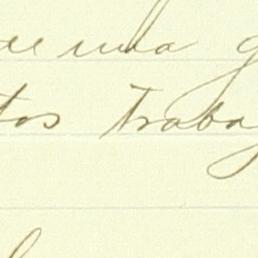 de una g
tos traba